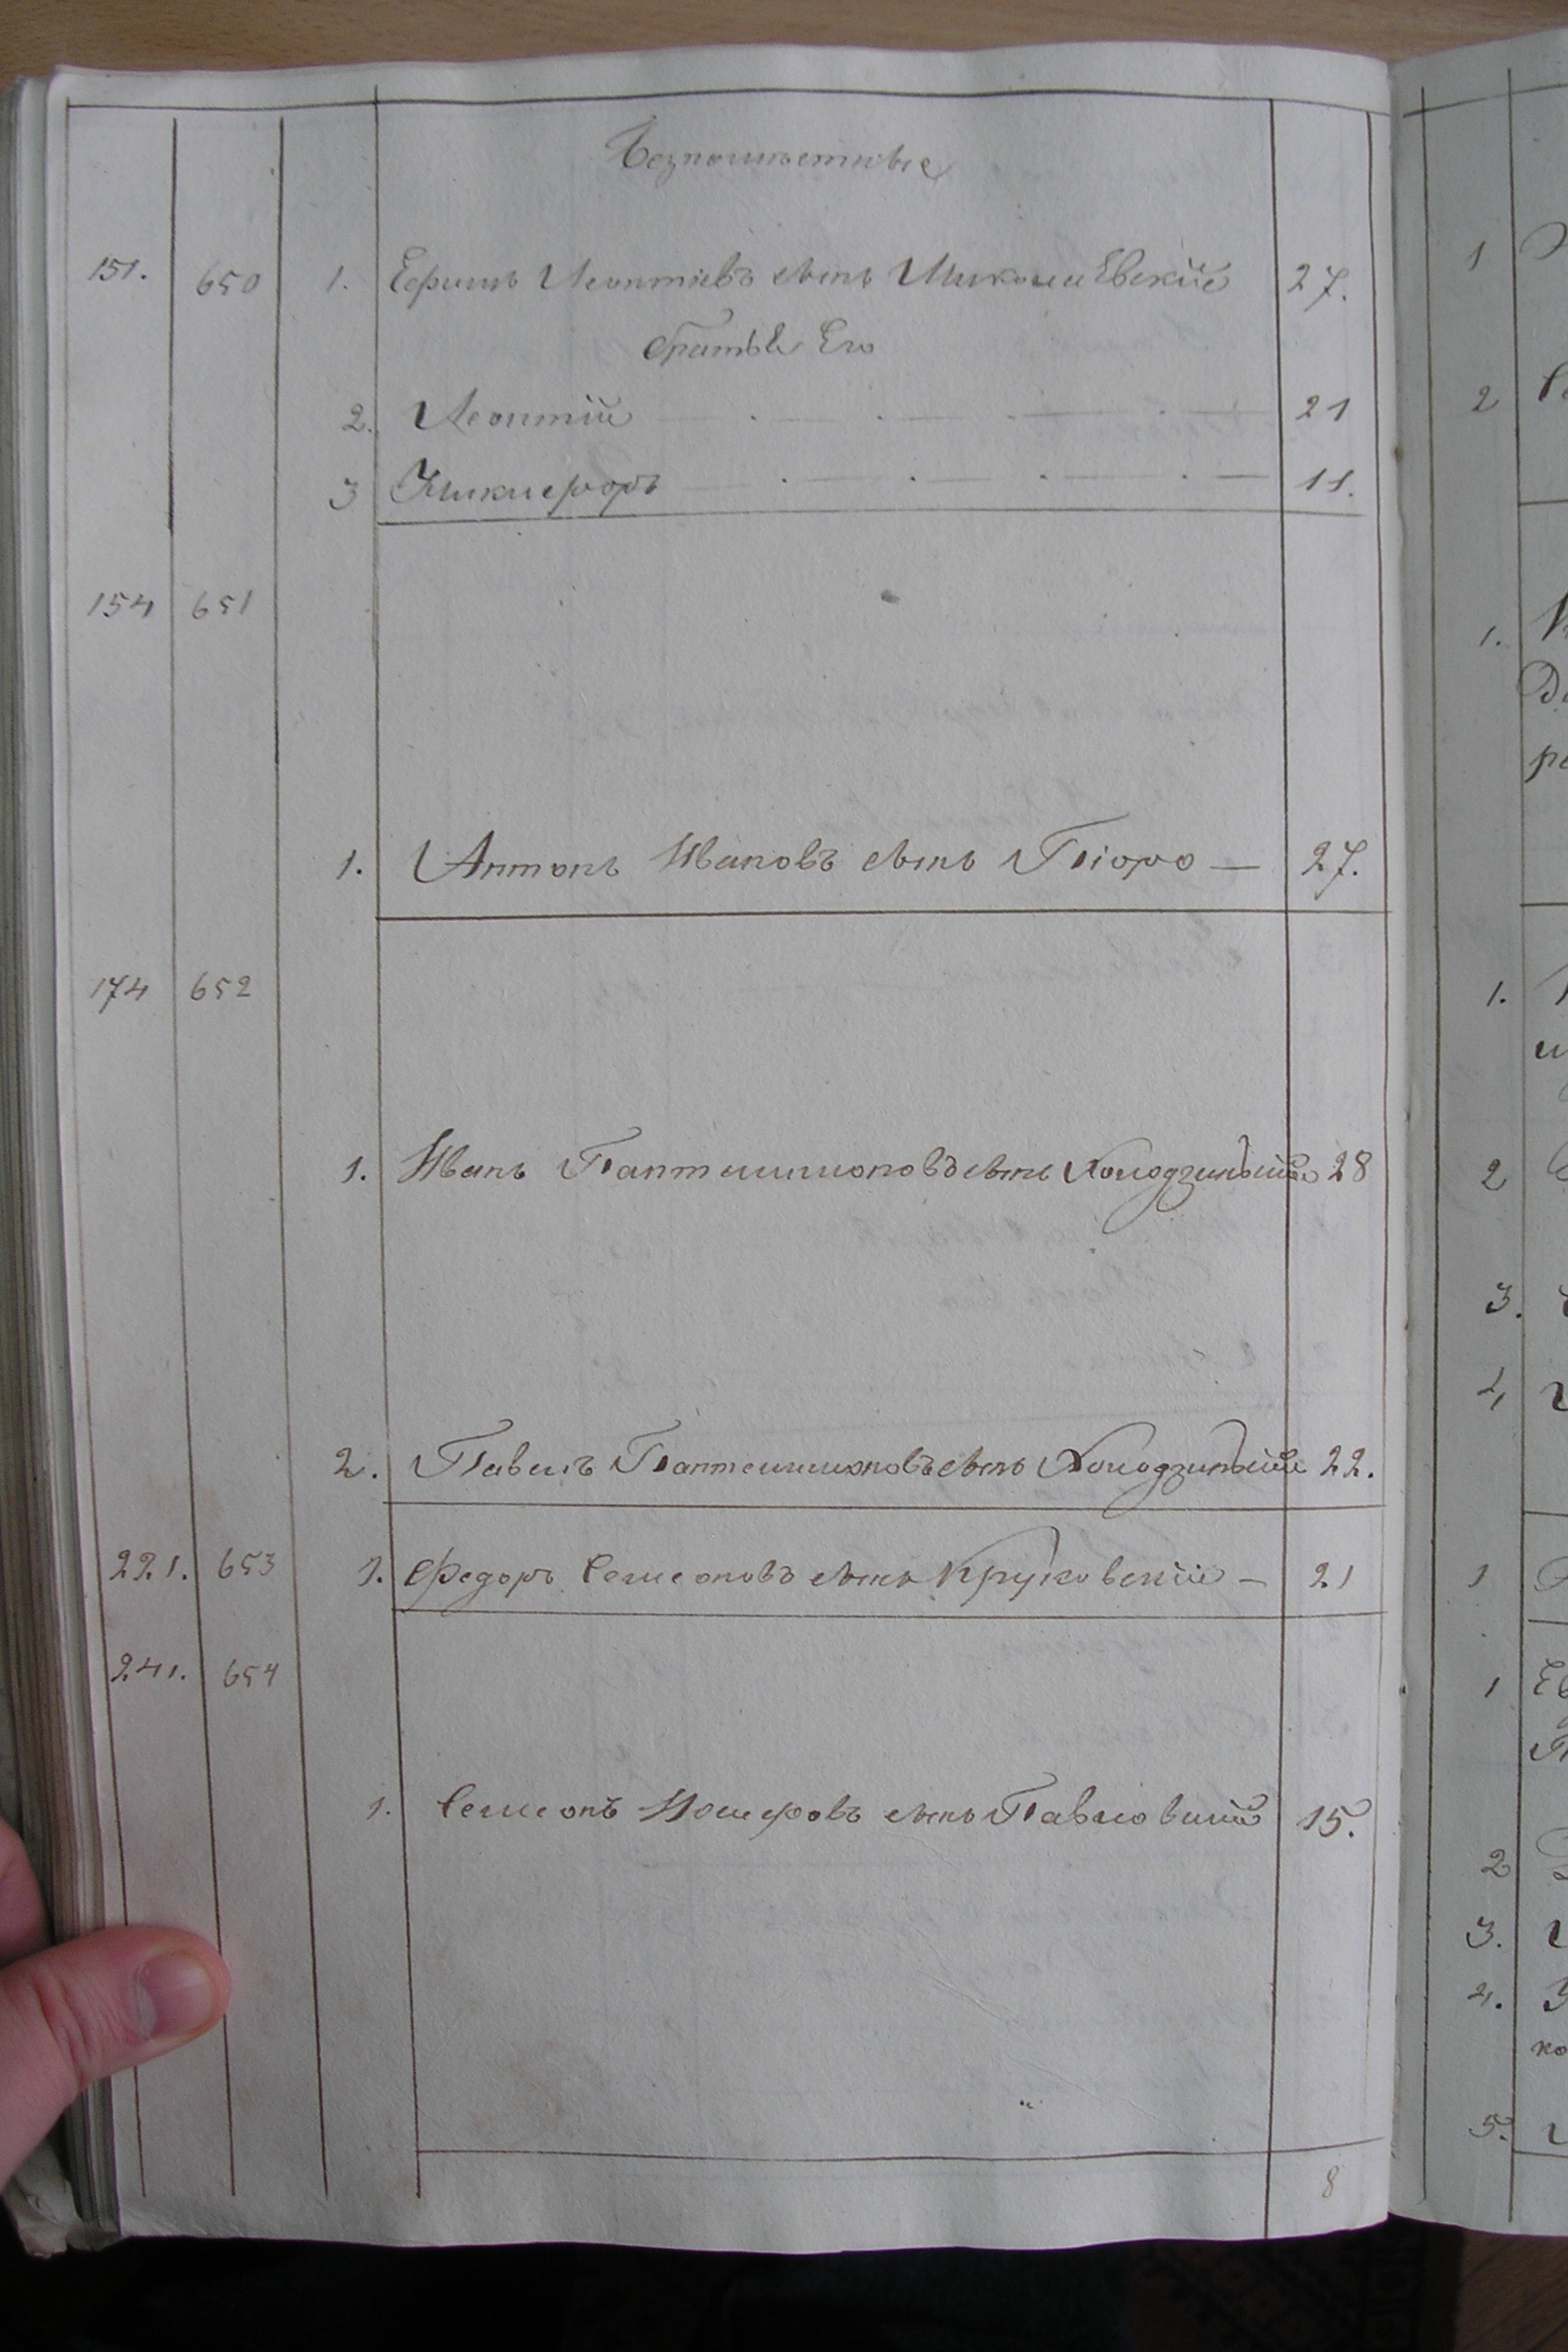 Безпоместные
151. 650 1. Ефимъ Леонтіевъ сынъ МиколаЕвскій 27.
братья Его
2. Леонтій 21
3 Никифоръ 11.
154 651
1. Антонъ Ивановъ сынъ Пюро 27.
174 652
1. Иванъ Пантелимоновъ сынъ Холодзинскій 28
2. Павелъ Пантелимоновъ сынъ Холодзинскій 22.
221. 653 1. Федоръ Семеоновъ сынъ Крулковскій 21
241. 654
1. Семеонъ Іосифовъ сынъ Павловскій 15.
8
1
2
1.
1.
2
3.
4
1
1
2
3.
4.
5.